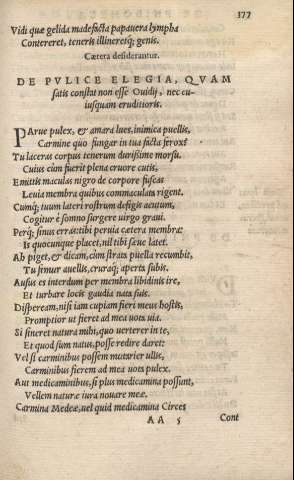 377
Vidi quæ gelida madefacta papauera lympha
Contereret, teneris illineretq; genis.
Cætera desiderantur.
DE PVLICE ELEGIA, QVAM
satis constat non esse Ouidij, nec cu-
iusquam eruditioris.
PArue pulex, & amara lues, inimica puellis,
Carmine quo fungar in tua facta ferox?
Tu laceras corpus tenerum durissime morsu,
Cuius cùm fuerit plena cruore cutis,
Emittis maculas nigro de corpore fuscas
Leuia membra quibus commaculata rigent.
Cumq; tuum lateri rostrum defigis acutum,
Cogitur è somno surgere virgo graui.
Perq; sinus erras: tibi peruia cætera membra
Is quocunque placet, nil tibi sæue latet.
Ah piget, & dicam, cùm strata puella recumbit,
Tu femur auellis, cruraq; aperta subis.
Ausus es interdum per membra libidinis ire,
Et turbare locis gaudia nata suis.
Dispeream, nisi iam cupiam fieri meus hostis,
Promptior ut fieret ad mea uota uia.
Si sineret natura mihi, quo verterer in te,
Et quod sum natus, posse redire daret:
Vel si carminibus possem mutarier ullis,
Carminibus fierem ad mea uota pulex.
Aut medicaminibus, si plus medicamina possunt,
Vellem naturæ iura nouare meæ.
Carmina Medeæ, uel quid medicamina Circes
AA 5 Cont